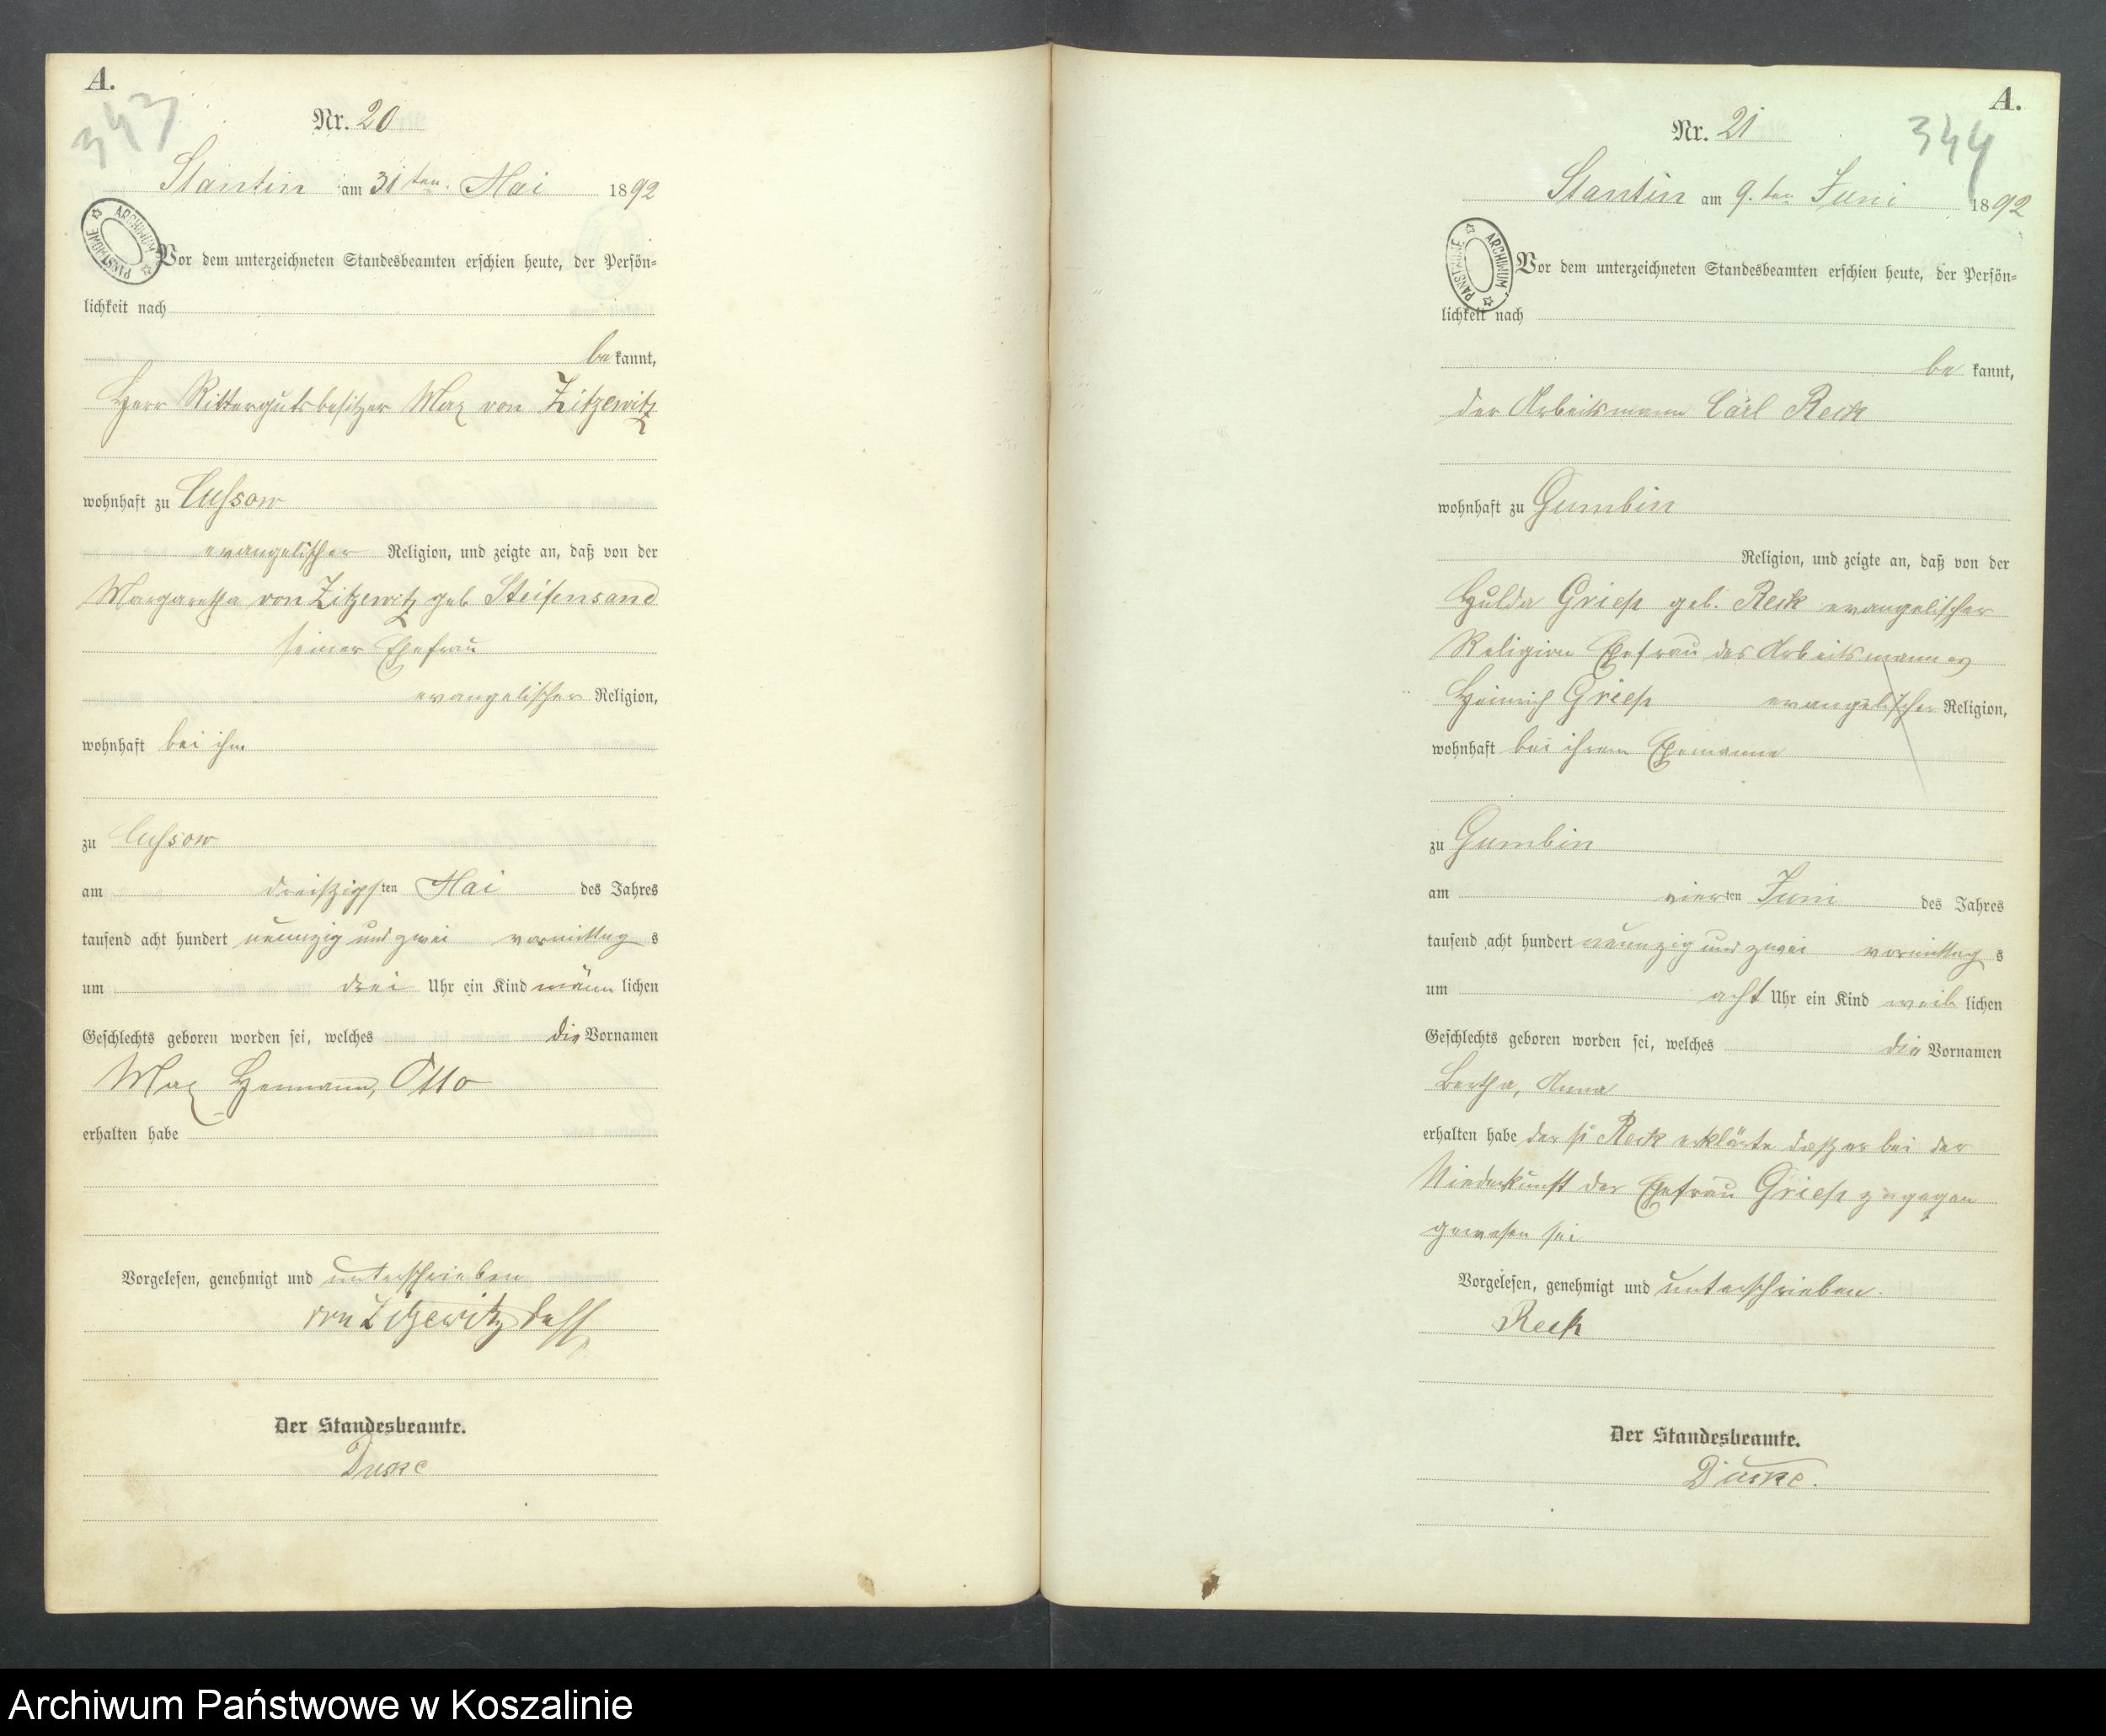 A.
343
Nr. 20
Stantin am 31ten Mai 1892
ARCHIWUM PAŃSTWOWE
Vor dem unterzeichneten Standesbeamten erschien heute, der Persön-
lichkeit nach
bekannt,
Herr Rittergutsbesitzer Max von Zitzewitz
wohnhaft zu Cussow
evangelischer Religion, und zeigte an, daß von der
Margaretha von Zitzewitz geb Steifensand
seiner Ehefrau
evangelischer Religion,
wohnhaft bei ihm
zu Cussow
am dreißigsten Mai des Jahres
tausend acht hundert neunzig und zwei vormittags
um drei Uhr ein Kind männlichen
Geschlechts geboren worden sei, welches die Vornamen
Max Hermann, Otto
erhalten habe
Vorgelesen, genehmigt und unterschrieben
von Zitzewitz
Der Standesbeamte.
A.
344
Nr. 21
Stantin am 9.ten Juni 1892
ARCHIWUM PAŃSTWOWE
Vor dem unterzeichneten Standesbeamten erschien heute, der Persön-
lichkeit nach
bekannt,
der Arbeitsmann Carl Reck
wohnhaft zu Gumbin
Religion, und zeigte an, daß von der
Hulda Griep geb. Reck evangelischer
Religion Ehefrau des Arbeitsmannes
Heinrich Griep evangelischer Religion,
wohnhaft bei ihrem Ehemanne
zu Gumbin
am vierten Juni des Jahres
tausend acht hundert neunzig und zwei vormittags
um acht Uhr ein Kind weiblichen
Geschlechts geboren worden sei, welches die Vornamen
Bertha, Anna
erhalten habe der Reck erklärte daß er bei der
Niederkunft der Ehefrau Griep zugegen
gewesen sei
Vorgelesen, genehmigt und unterschrieben.
Reck
Der Standesbeamte.
Archiwum Państwowe w Koszalinie